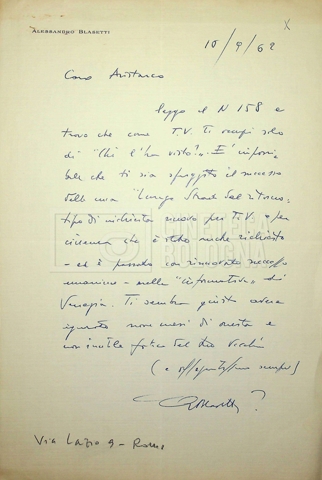 ALESSANDRO BLASETTI
X
10/9/62
Caro Aristarco
leggo il N 158 e
trovo che come T.V. ti occupi solo
di "Chi l'ha visto?". E'
che ti sia sfuggito il successo
della mia "Lunga Strada del ritorno"
tipo di inchiesta per T.V. e per
cinema che è stato anche richiesto
- ed è passato con rinnovato successo
- nella "informativa" di
Venezia. Ti sembra giusto avere
ignorato nove mesi di onesta e
non inutile fatica del tuo vecchio
(e
Blasetti?
Via Lazio 9 - Roma